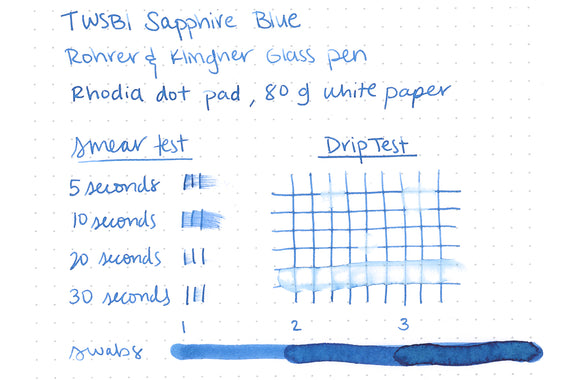 TWSBI Sapphire Blue
Rohrer & Klingner Glass pen
Rhodia dot pad, 80 g white paper
smear test
Drip Test
5 seconds
10 seconds
20 seconds
30 seconds
1 2 3
swabs